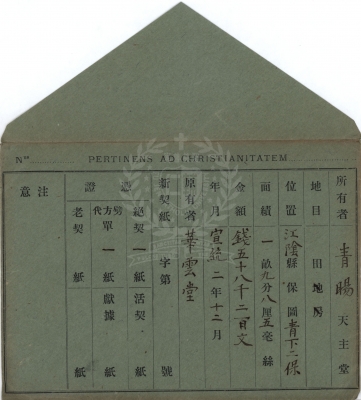 Nº
PERTINENS AD CHRISTIANITATEM
所有者 青暘 天主堂
地目 田地房
位置 江陰縣 保圖青下二保
面積 一畝九分八厘五毫 絲
金額 錢五十八千二百文
年月 宣統二年十二月
原有者 華雲堂
新契紙 字第 號
憑證 絕契 一 紙 活契 紙
代方單 一 紙 獻據 紙
老契 紙
注意